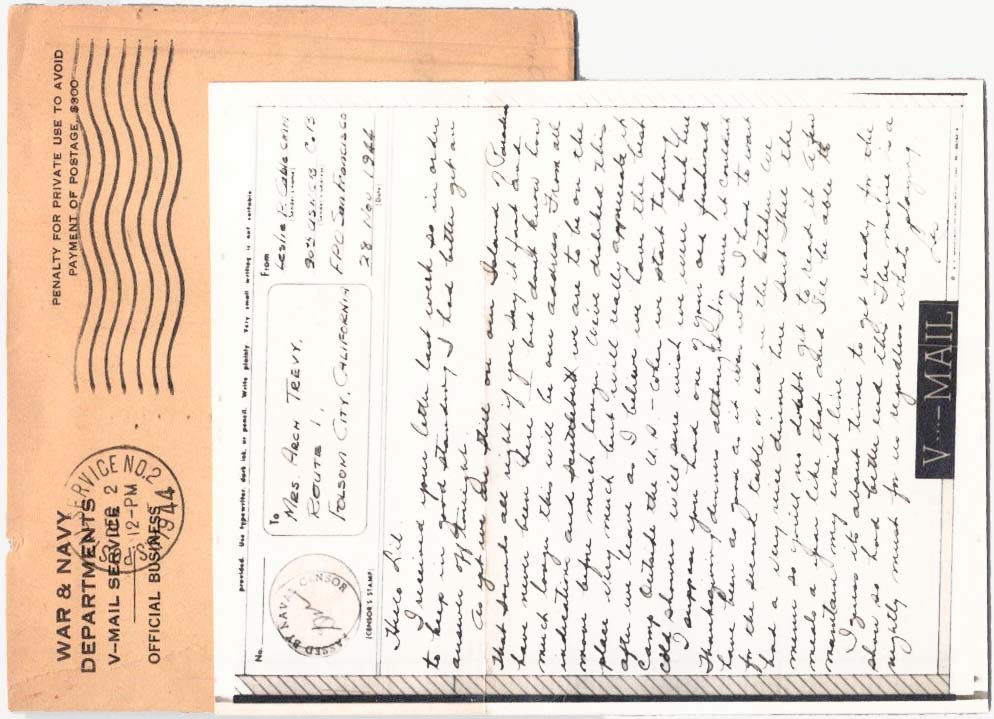 PENALTY FOR PRIVATE USE TO AVOID
PAYMENT OF POSTAGE, $300
WAR & NAVY
DEPARTMENTS
V-MAIL SERVICE
OFFICIAL BUSINESS
SERVICE NO. 2
2
12-PM
1944
provided. Use typewriter, dark ink, or pencil. Write plainly. Very small writing is not suitable.
No.
To
MRS. ARCH TREVY,
ROUTE 1,
FOLSOM CITY, CALIFORNIA
From
LESLIE P. CABLE CM1/c
90th USNCB Co B
FPO San Francisco
28 Nov 1944
(Date)
PASSED BY NAVAL CENSOR
(CENSOR'S STAMP)
Hello Sis
I received your letter last week so in order
to keep in good standing I had better get an
answer off tonight.
As yet are still on our Island Paradise
that sounds all right if you say it fast and
have never been here but dont know how
much longer this will be our address. From all
indication and we are to be on the
move before much longer. We've disliked this
place very much but will really appreciate it
after we leave as I believe we have the best
Camp Outside the U.S. - when we start taking
cold showers will sure wish we were back here
I suppose you had one of your old fashioned
Thanksgiving dinners altho I'm sure it couldnt
have been as good as it was when I had to wait
for the second table or eat in the kitchen. We
had a very nice dinner here but still the
menu so you'll no doubt get to read it. A few
meals a year like that and I'll be able to
maintain my waist line
I guess its about time to get ready for the
show so had better end this. The movie is a
nightly must for us regardless whats playing
Les
V···—MAIL